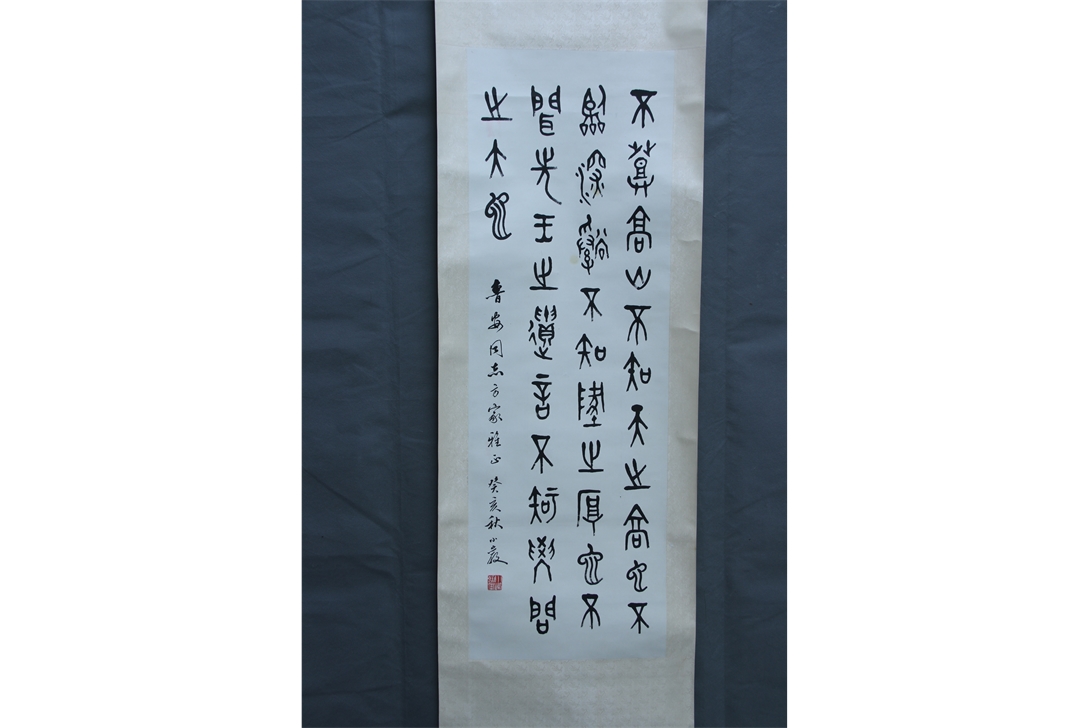 不登高山不知天之高也不
臨深谿不知墬之厚也不
聞先王之遺言不知學問
之大也 魯安同志方家雅正 癸亥秋